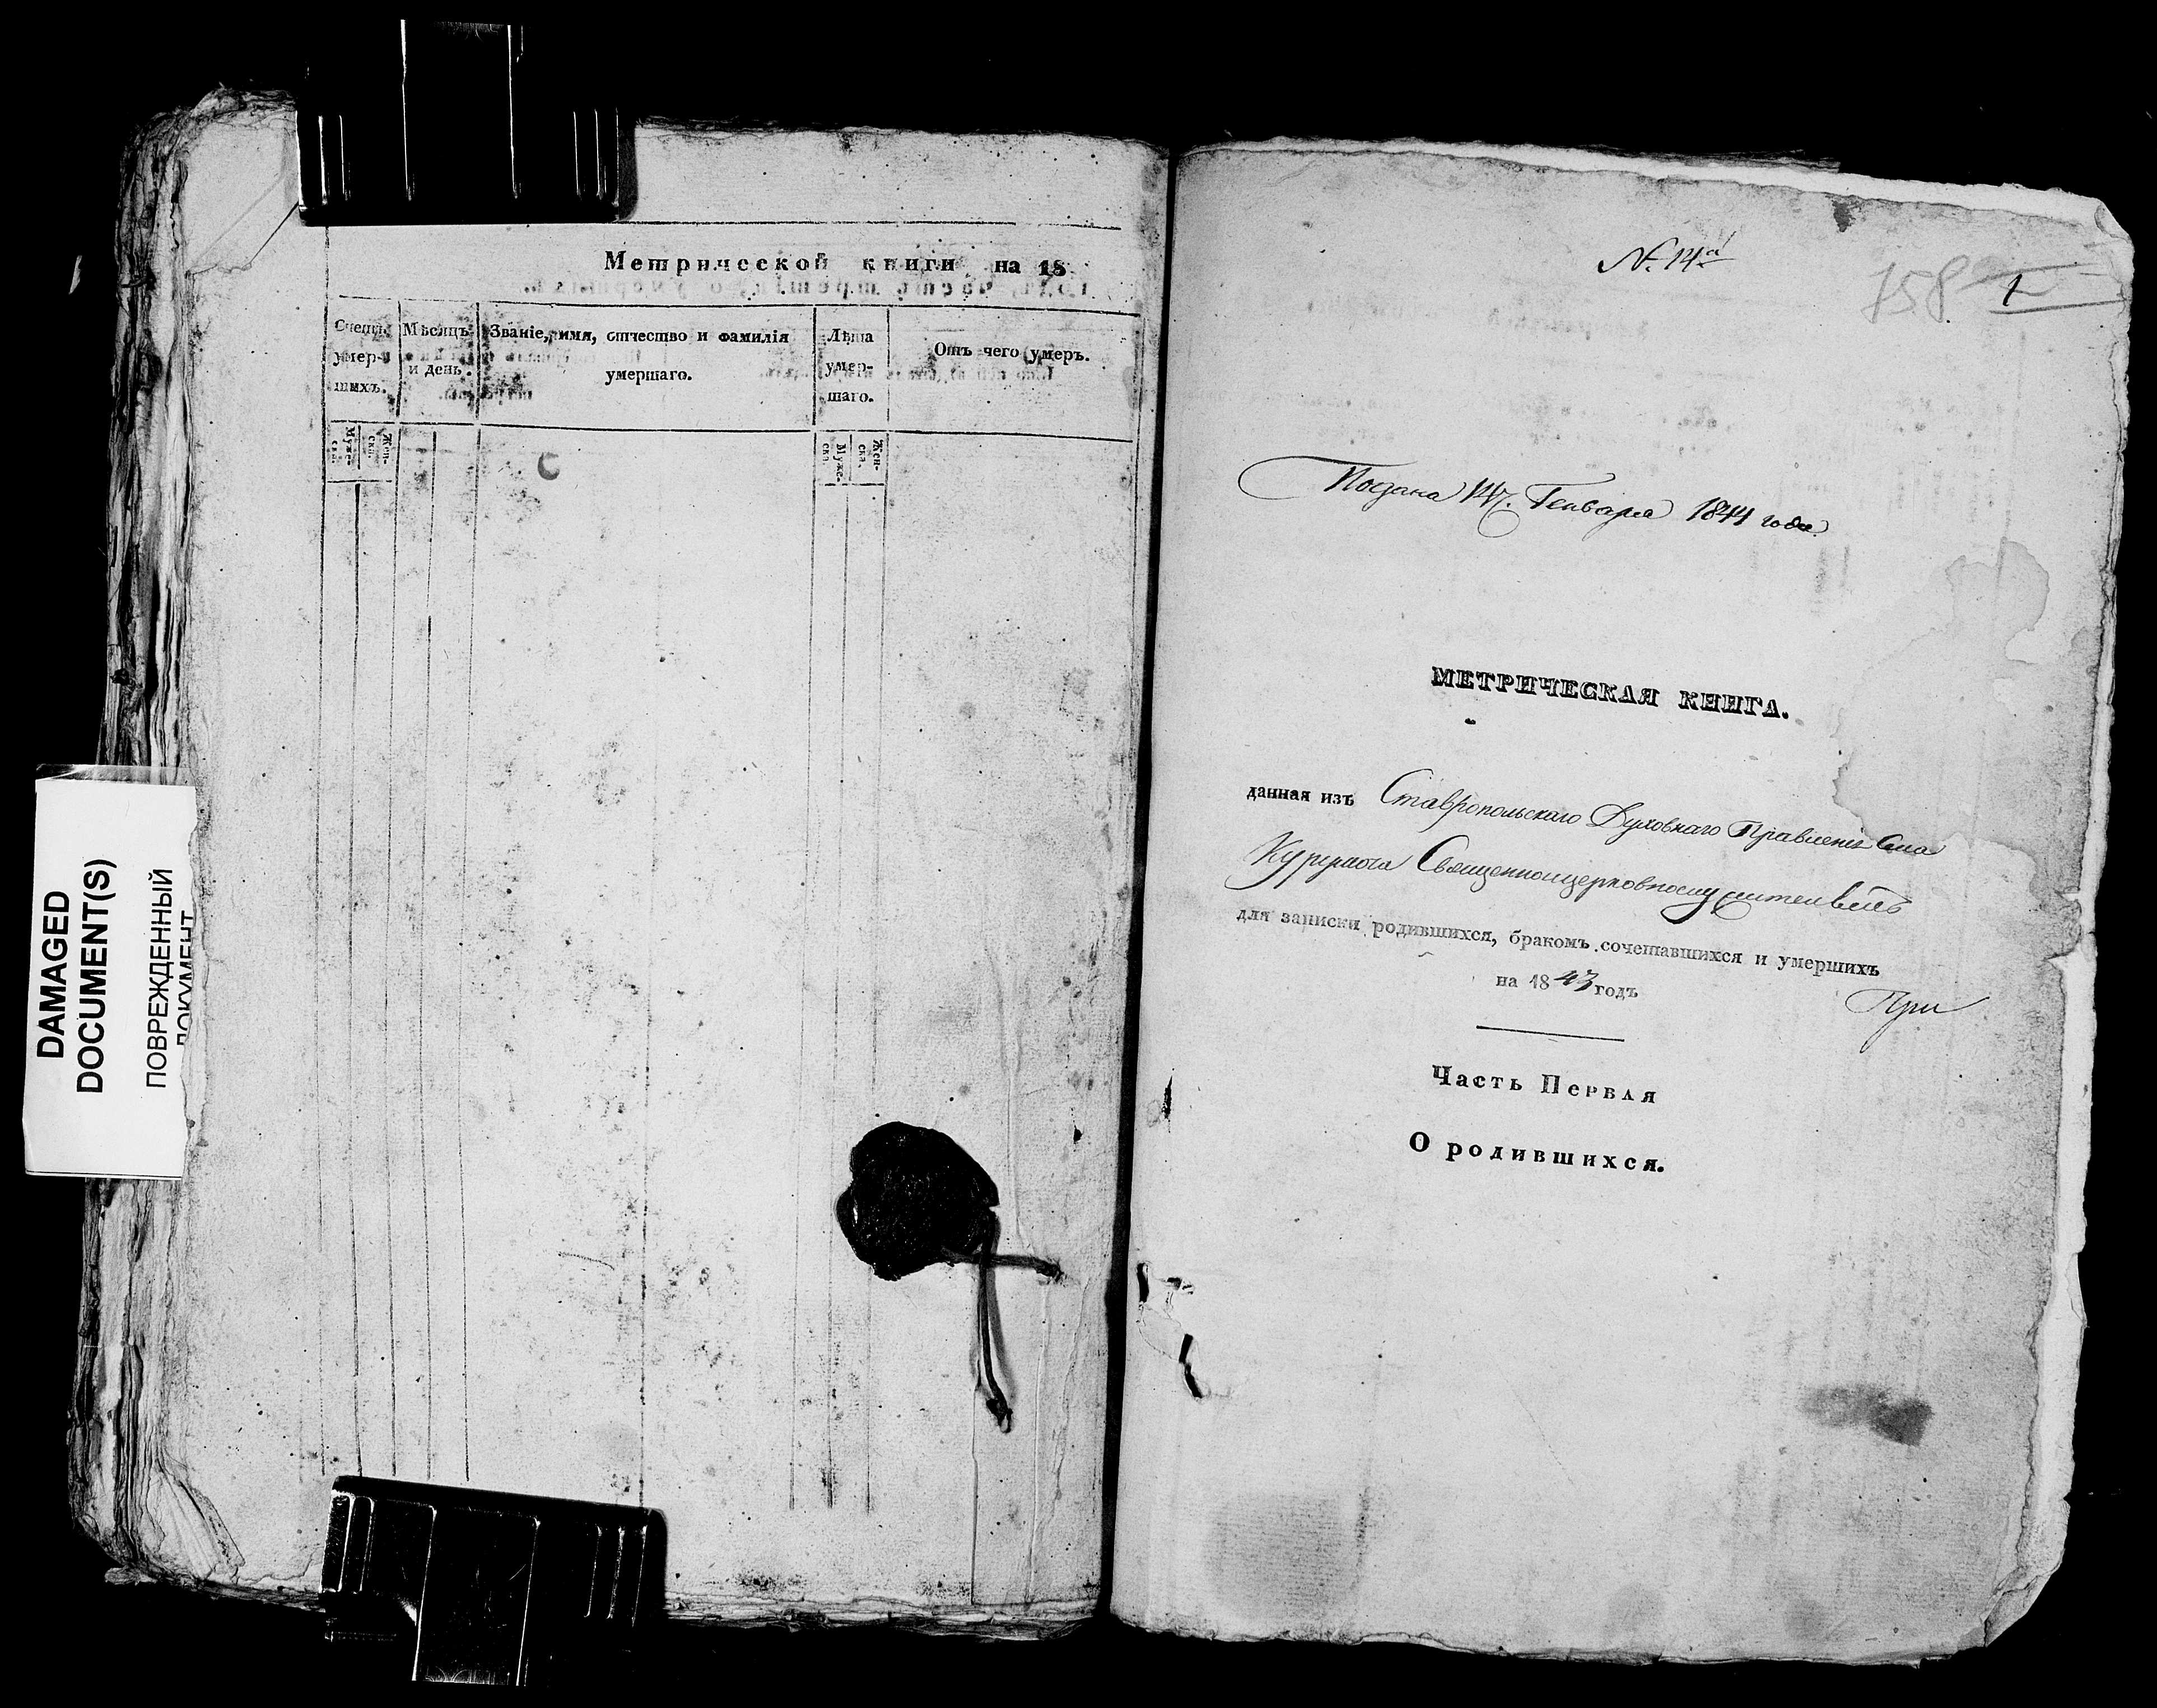 Метрической книги на 18
Счетъ умер- шихъ.
Мѣсяцъ и день.
Званіе, имя, отчество и фамилія умершаго.
Лѣта умер- шаго.
Отъ чего умеръ.
Муже- ска.
Жен- ска.
Муже- ска.
Жен- ска.
DAMAGED
DOCUMENT(S)
ПОВРЕЖДЕННЫЙ
ДОКУМЕНТ
N. 14й
758
1
Подана Генваря 1844 года
МЕТРИЧЕСКАЯ КНИГА.
данная изъ Ставропольскаго Духовнаго Правленія Села
Курумоча Священноцерковнослужителямъ
для записки родившихся, бракомъ сочетавшихся и умершихъ
на 1843 годъ
При
Часть Первая
О родившихся.